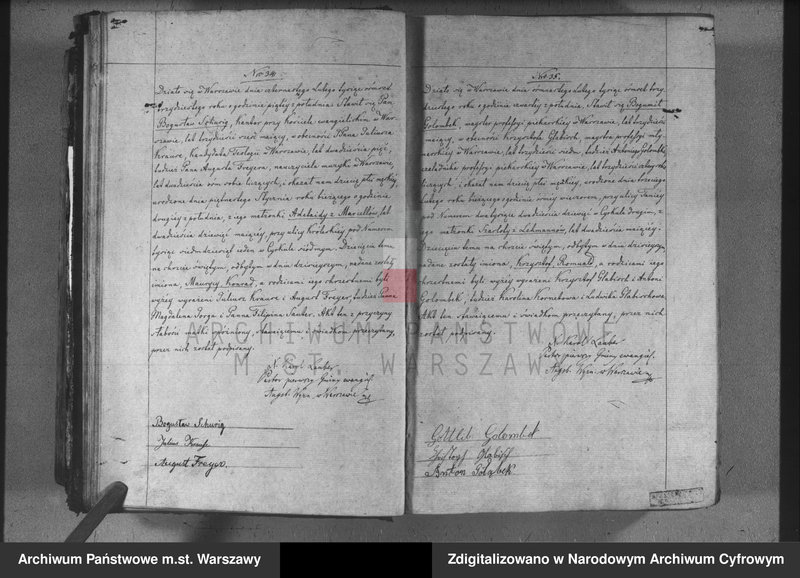 Nro 34.
Działo się w Warszawie dnia czternastego Lutego tysiąc ośmset
trzydziestego roku o godzinie piątej z południa. Stawił się Pan
Bogusław Schurig, kantor przy kościele ewangielickim w War-
szawie, lat trzydzieści sześć mający, w obecności Pana Juliusza
Krause, Kandydata Teologii w Warszawie, lat dwadzieścia pięć,
tudzież Pana Augusta Freyera, nauczyciela muzyki w Warszawie,
lat dwadzieścia osm roku liczących, i okazał nam dziecię płci męzkiej,
urodzone dnia piętnastego Stycznia roku bieżącego o godzinie
drugiej z południa, z jego małżonki Adelaidy z Marcellów, lat
dwadzieścia dziewięć mającej, przy ulicy Królewskiej pod Numerem
tysiąc siedmdziesiąt jeden w Cyrkule siódmym. Dziecięciu temu
na chrzcie świętym, odbytym w dniu dzisiejszym, nadane zostały
imiona, Maurycy Konrad, a rodzicami jego chrzestnemi byli
wyżej wyrażeni Juliusz Krause i August Freyer, tudzież Panna
Magdalena Poppe i Panna Filipina Lauber. Akt ten z przyczyny
słabości matki opóźniony, stawiącemu i świadkom przeczytany,
przez nich został podpisany.
X. Karol Lauber
Pastor pierwszy Gminy ewangif.
Augsb. Wyzn. w Warszawie
Bogusław Schurig
Julius Krause
August Freyer.
Nro 35.
Działo się w Warszawie dnia czternastego Lutego tysiąc ośmset trzy-
dziestego roku o godzinie czwartej z południa. Stawił się Bogumił
Golombek, majster professyi piekarskiej w Warszawie, lat trzydzieści
mający, w obecności Krzysztofa Glabisch, majstra professyi mły-
narskiej w Warszawie, lat trzydzieści siedm, tudzież Antoniego Golombek,
czeladnika professyi piekarskiej w Warszawie, lat trzydzieści cztery roku
liczących i okazał nam dziecię płci męzkiej, urodzone dnia trzeciego
Lutego roku bieżącego o godzinie osmej wieczorem, przy ulicy
pod Numerem dwa tysiące dwadzieścia dziewięć w Cyrkule drugim, z
jego małżonki Szarloty z Lehmannów, lat dwadzieścia mającej.
Dziecięciu temu na chrzcie świętym, odbytym w dniu dzisiejszym,
nadane zostały imiona, Krzysztof Romuald, a rodzicami jego
chrzestnemi byli wyżej wyrażeni Krzysztof Glabisch i Antoni
Golombek, tudzież Karolina i Ludwika Glabischowa.
Akt ten stawiącemu i świadkom przeczytany, przez nich
został podpisany.
X. Karol Lauber
Pastor pierwszy Gminy ewangif.
Augsb. Wyzn. w Warszawie
Gottlieb Golombek
Glabisch
Anton Golabek
ARCHIWUM PAŃSTWOWE
M.ST. WARSZAWY
Archiwum Państwowe m.st. Warszawy
Zdigitalizowano w Narodowym Archiwum Cyfrowym